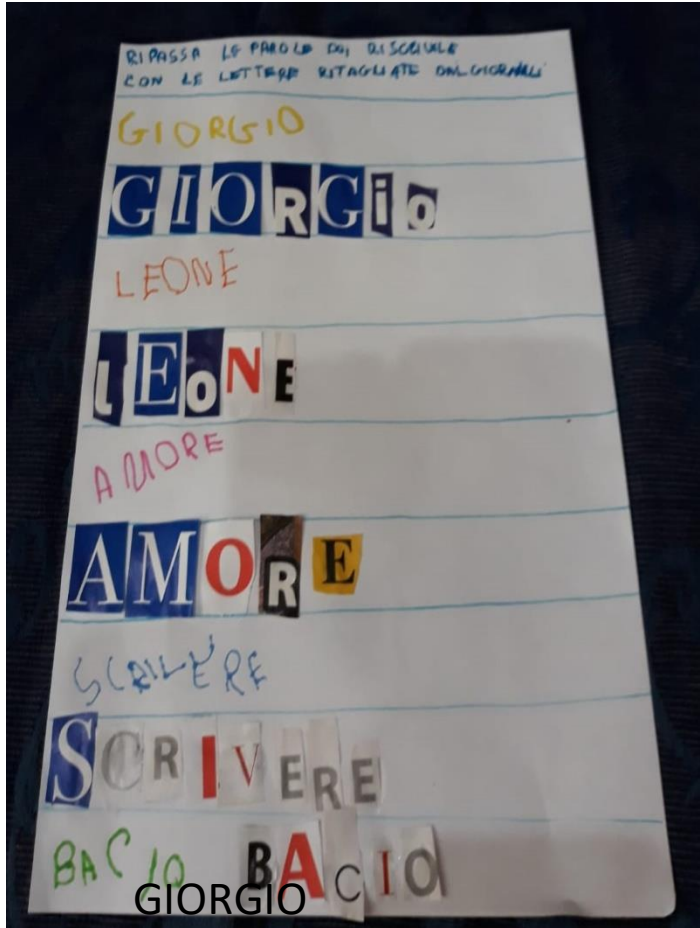 RIPASSA LE PAROLE POI RISCRIVILE
CON LE LETTERE RITAGLIATE DAI GIORNALI
GIORGIO
GIORGiO
LEONE
lEoNE
AMORE
AMORE
SCRIVERE
SCRIVERE
BACIO BACIO
GIORGIO